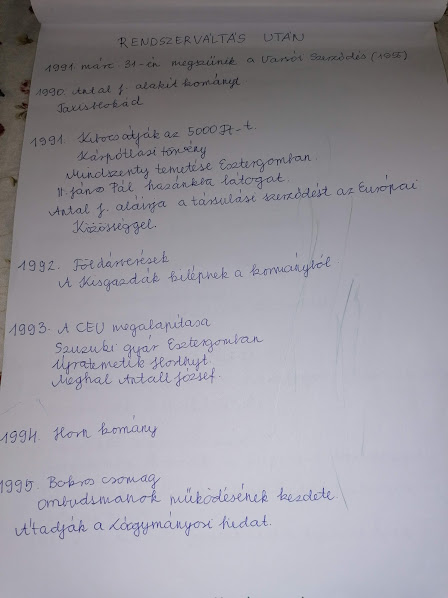 RENDSZERVÁLTÁS UTÁN
1991 márc. 31-én megszűnik a Varsói Szerződés (1955)
1990. Antal J. alakit kományt
Taxisblokád
1991. Kibocsátják az 5000 Ft-t.
Kárpótlási törvény
Mindszenty temetése Esztergomban.
II. János Pál hazánkba látogat.
Antal J. aláirja a társulási szerződést az Európai
Közösséggel.
1992. Földárverések
A Kisgazdák kilépnek a kormányból
1993. A CEU megalapitása
Szuzuki gyár Esztergomban
Újratemetik Horthyt.
Meghal Antall József.
1994. Horn komány
1995. Bokros csomag
Ombudsmanok működésének kezdete.
Átadják a Lágymányosi hidat.